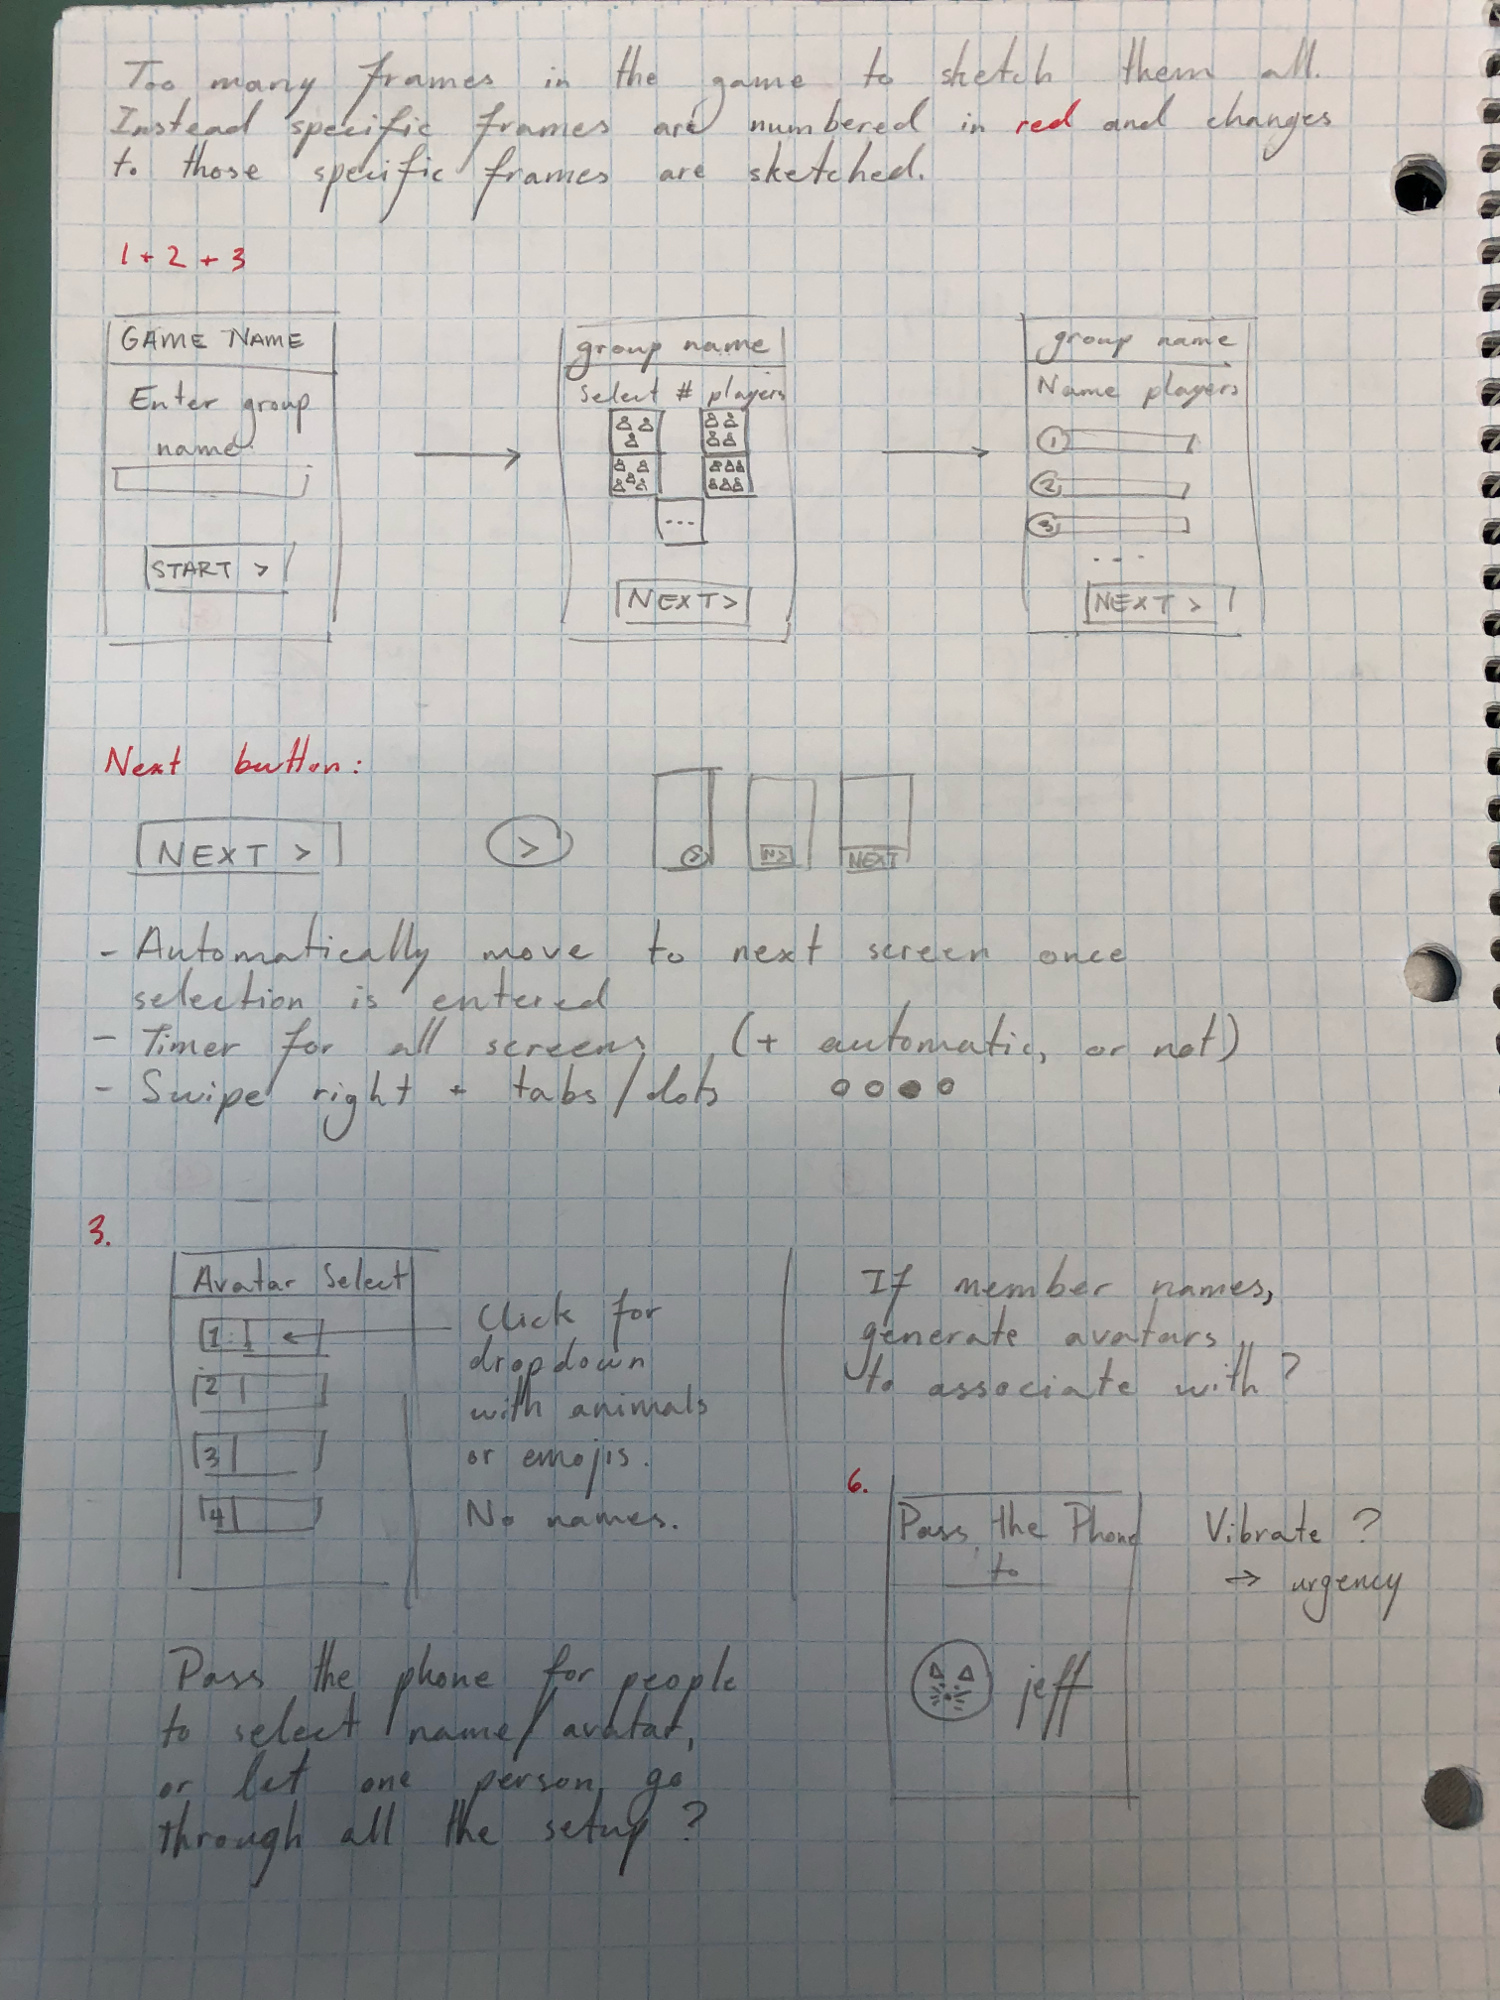 Too many frames in the game to sketch them all.
Instead specific frames are numbered in red and changes
to those specific frames are sketched.
1 + 2 + 3
GAME NAME
Enter group
name:
START >
group name
Select # players
...
NEXT >
group name
Name players
1
2
3
....
NEXT >
Next button:
NEXT >
>
>
N>
NEXT
- Automatically move to next screen once
selection is entered
- Timer for all screens (+ automatic, or not)
- Swipe right + tabs/dots
3.
Avatar Select
1
2
3
4
Click for
dropdown
with animals
or emojis.
No names.
If member names,
generate avatars
to associate with?
6.
Pass the Phone
to
jeff
Vibrate ?
→ urgency
Pass the phone for people
to select name/avatar,
or let one person go
through all the setup ?